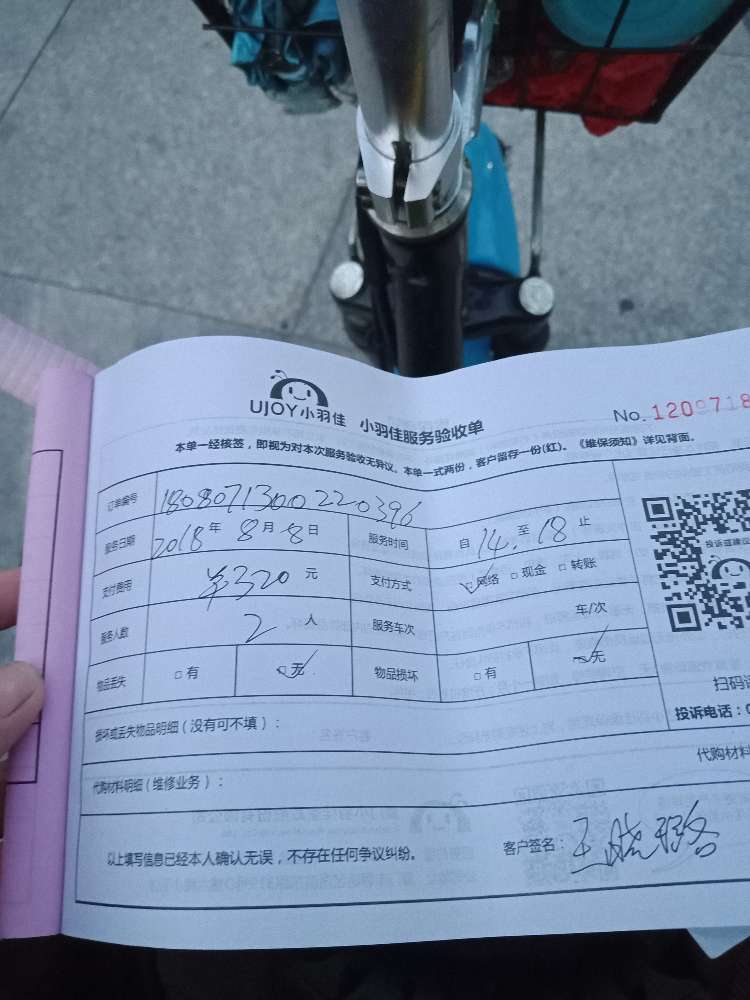 UJOY小羽佳 小羽佳服务验收单
No. 1209718
本单一经核签，即视为对本次服务验收无异议。本单一式两份，客户留存一份(红)。《维保须知》详见背面。
订单编号 1808071300220396
服务日期 2018年8月8日 服务时间 自14至18止
支付费用 ¥320元 支付方式 ☑网络 □现金 □转账
服务人数 2人 服务车次 车/次
物品丢失 □有 ☑无 物品损坏 □有 ☑无
投诉或建议
扫码
投诉电话：0
损坏或丢失物品明细（没有可不填）：
代购材料明细（维修业务）： 代购材料
以上填写信息已经本人确认无误，不存在任何争议纠纷。 客户签名：王晓璐